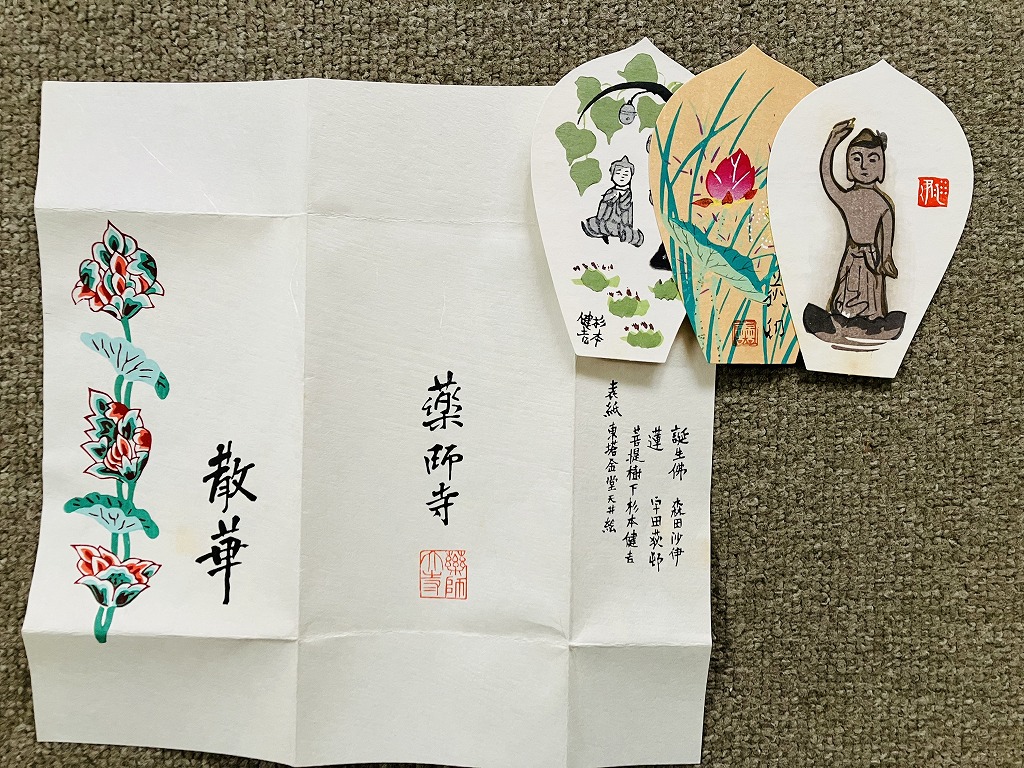 散華
薬師寺
薬師
大寺
誕生佛 森田沙伊
蓮 早田荻邨
菩提樹下 杉本健吉
表紙 東塔金堂天井絵
杉本
健吉